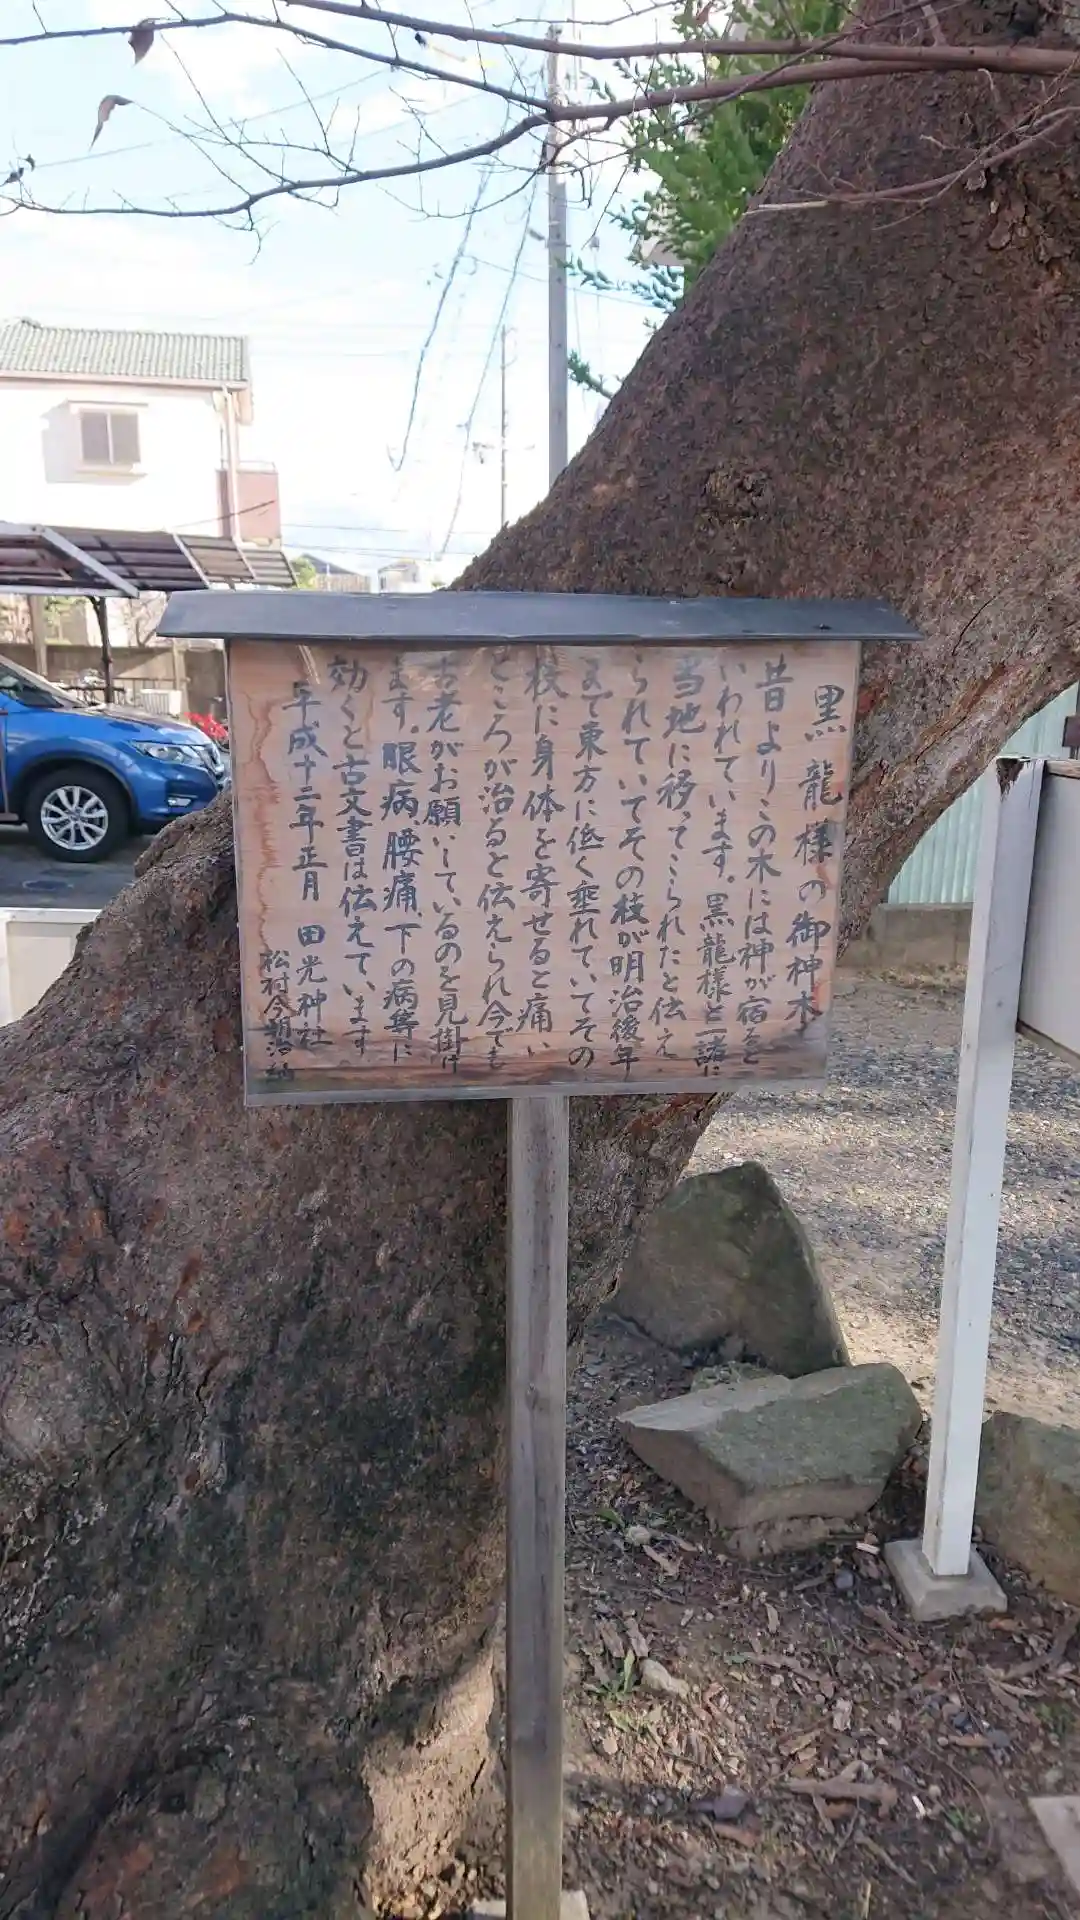 黒龍様の御神木
昔よりこの木には神が宿ると
いわれています。黒龍様と一諸に
当地に移ってこられたと伝え
られていてその枝が明治後年
まで東方に低く垂れていてその
枝に身体を寄せると痛い
ところが治ると伝えられ今でも
古老がお願いしているのを見掛け
ます。眼病、腰痛、下の病等に
効くと古文書は伝えています
平成十二年正月 田光神社
松村今朝治